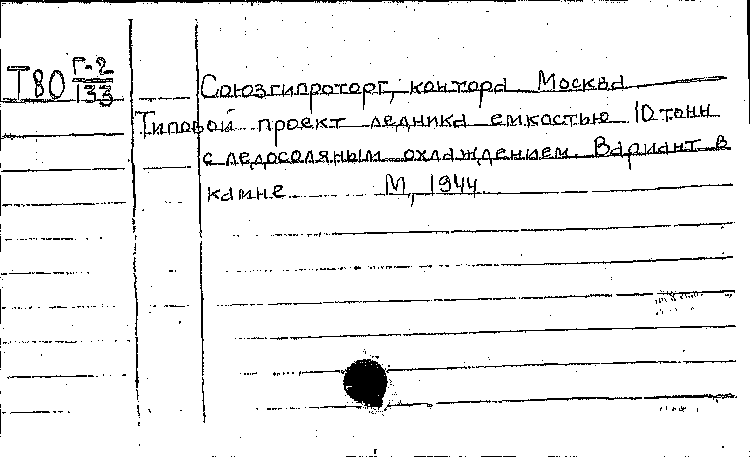 Т80 Г-2
133
Союзгипроторг, контора Москва
Типовой проект ледника емкостью 10 тонн
с ледосоляным охлаждением. Вариант в
камне М, 1944